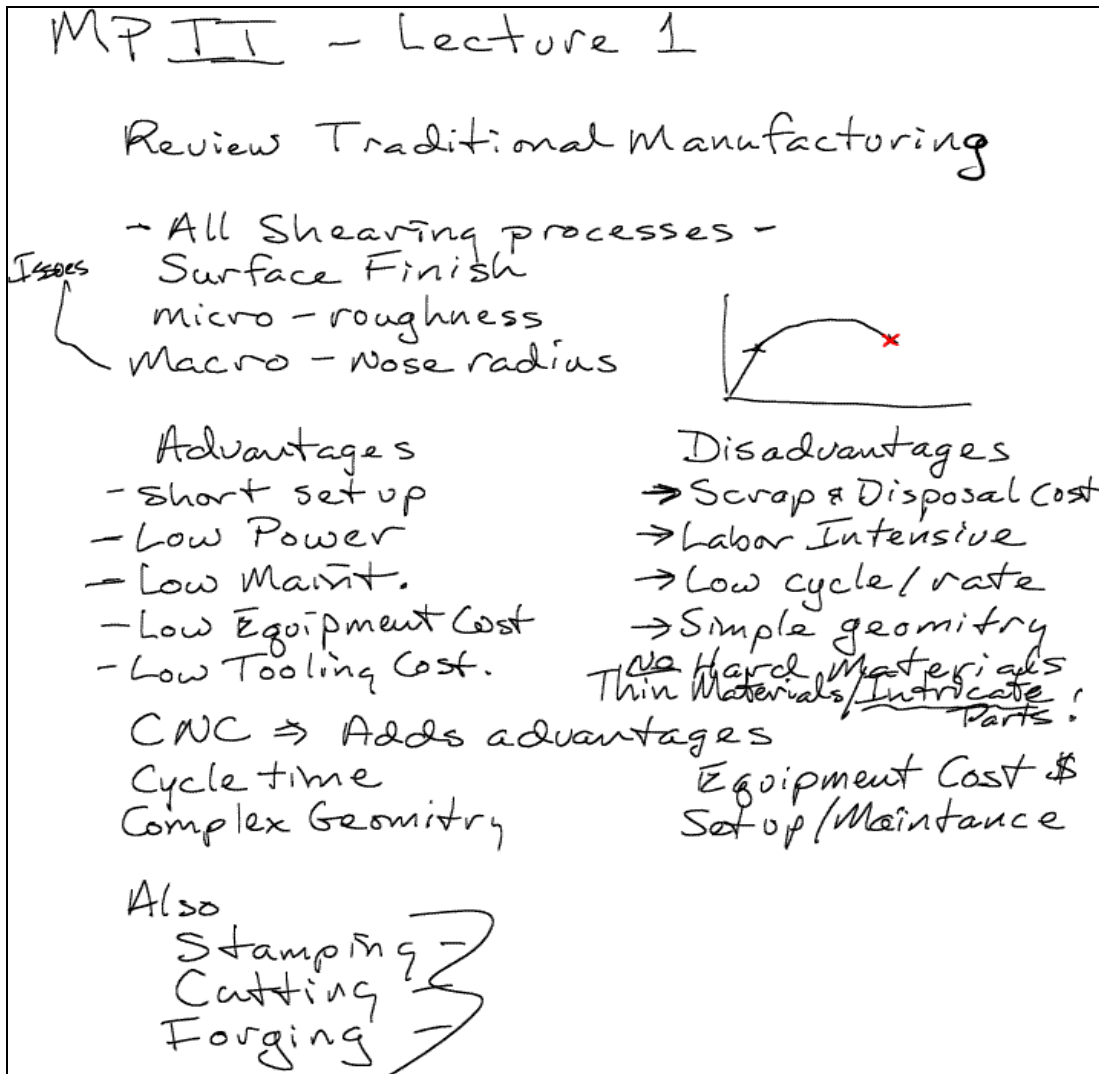 MP II - Lecture 1
Review Traditional Manufacturing
- All Shearing processes -
Issues
Surface Finish
micro - roughness
Macro - Nose radius
Advantages
- short set up
- Low Power
- Low Maint.
- Low Equipment Cost
- Low Tooling Cost.
Disadvantages
→ Scrap & Disposal Cost
→ Labor Intensive
→ Low cycle/rate
→ Simple geomitry
No Hard Materials
Thin Materials/Intricate
Parts!
CNC ⇒ Adds advantages
Cycle time
Complex Geomitry
Equipment Cost $
Set up/Maintance
Also
Stamping -
Cutting -
Forging -